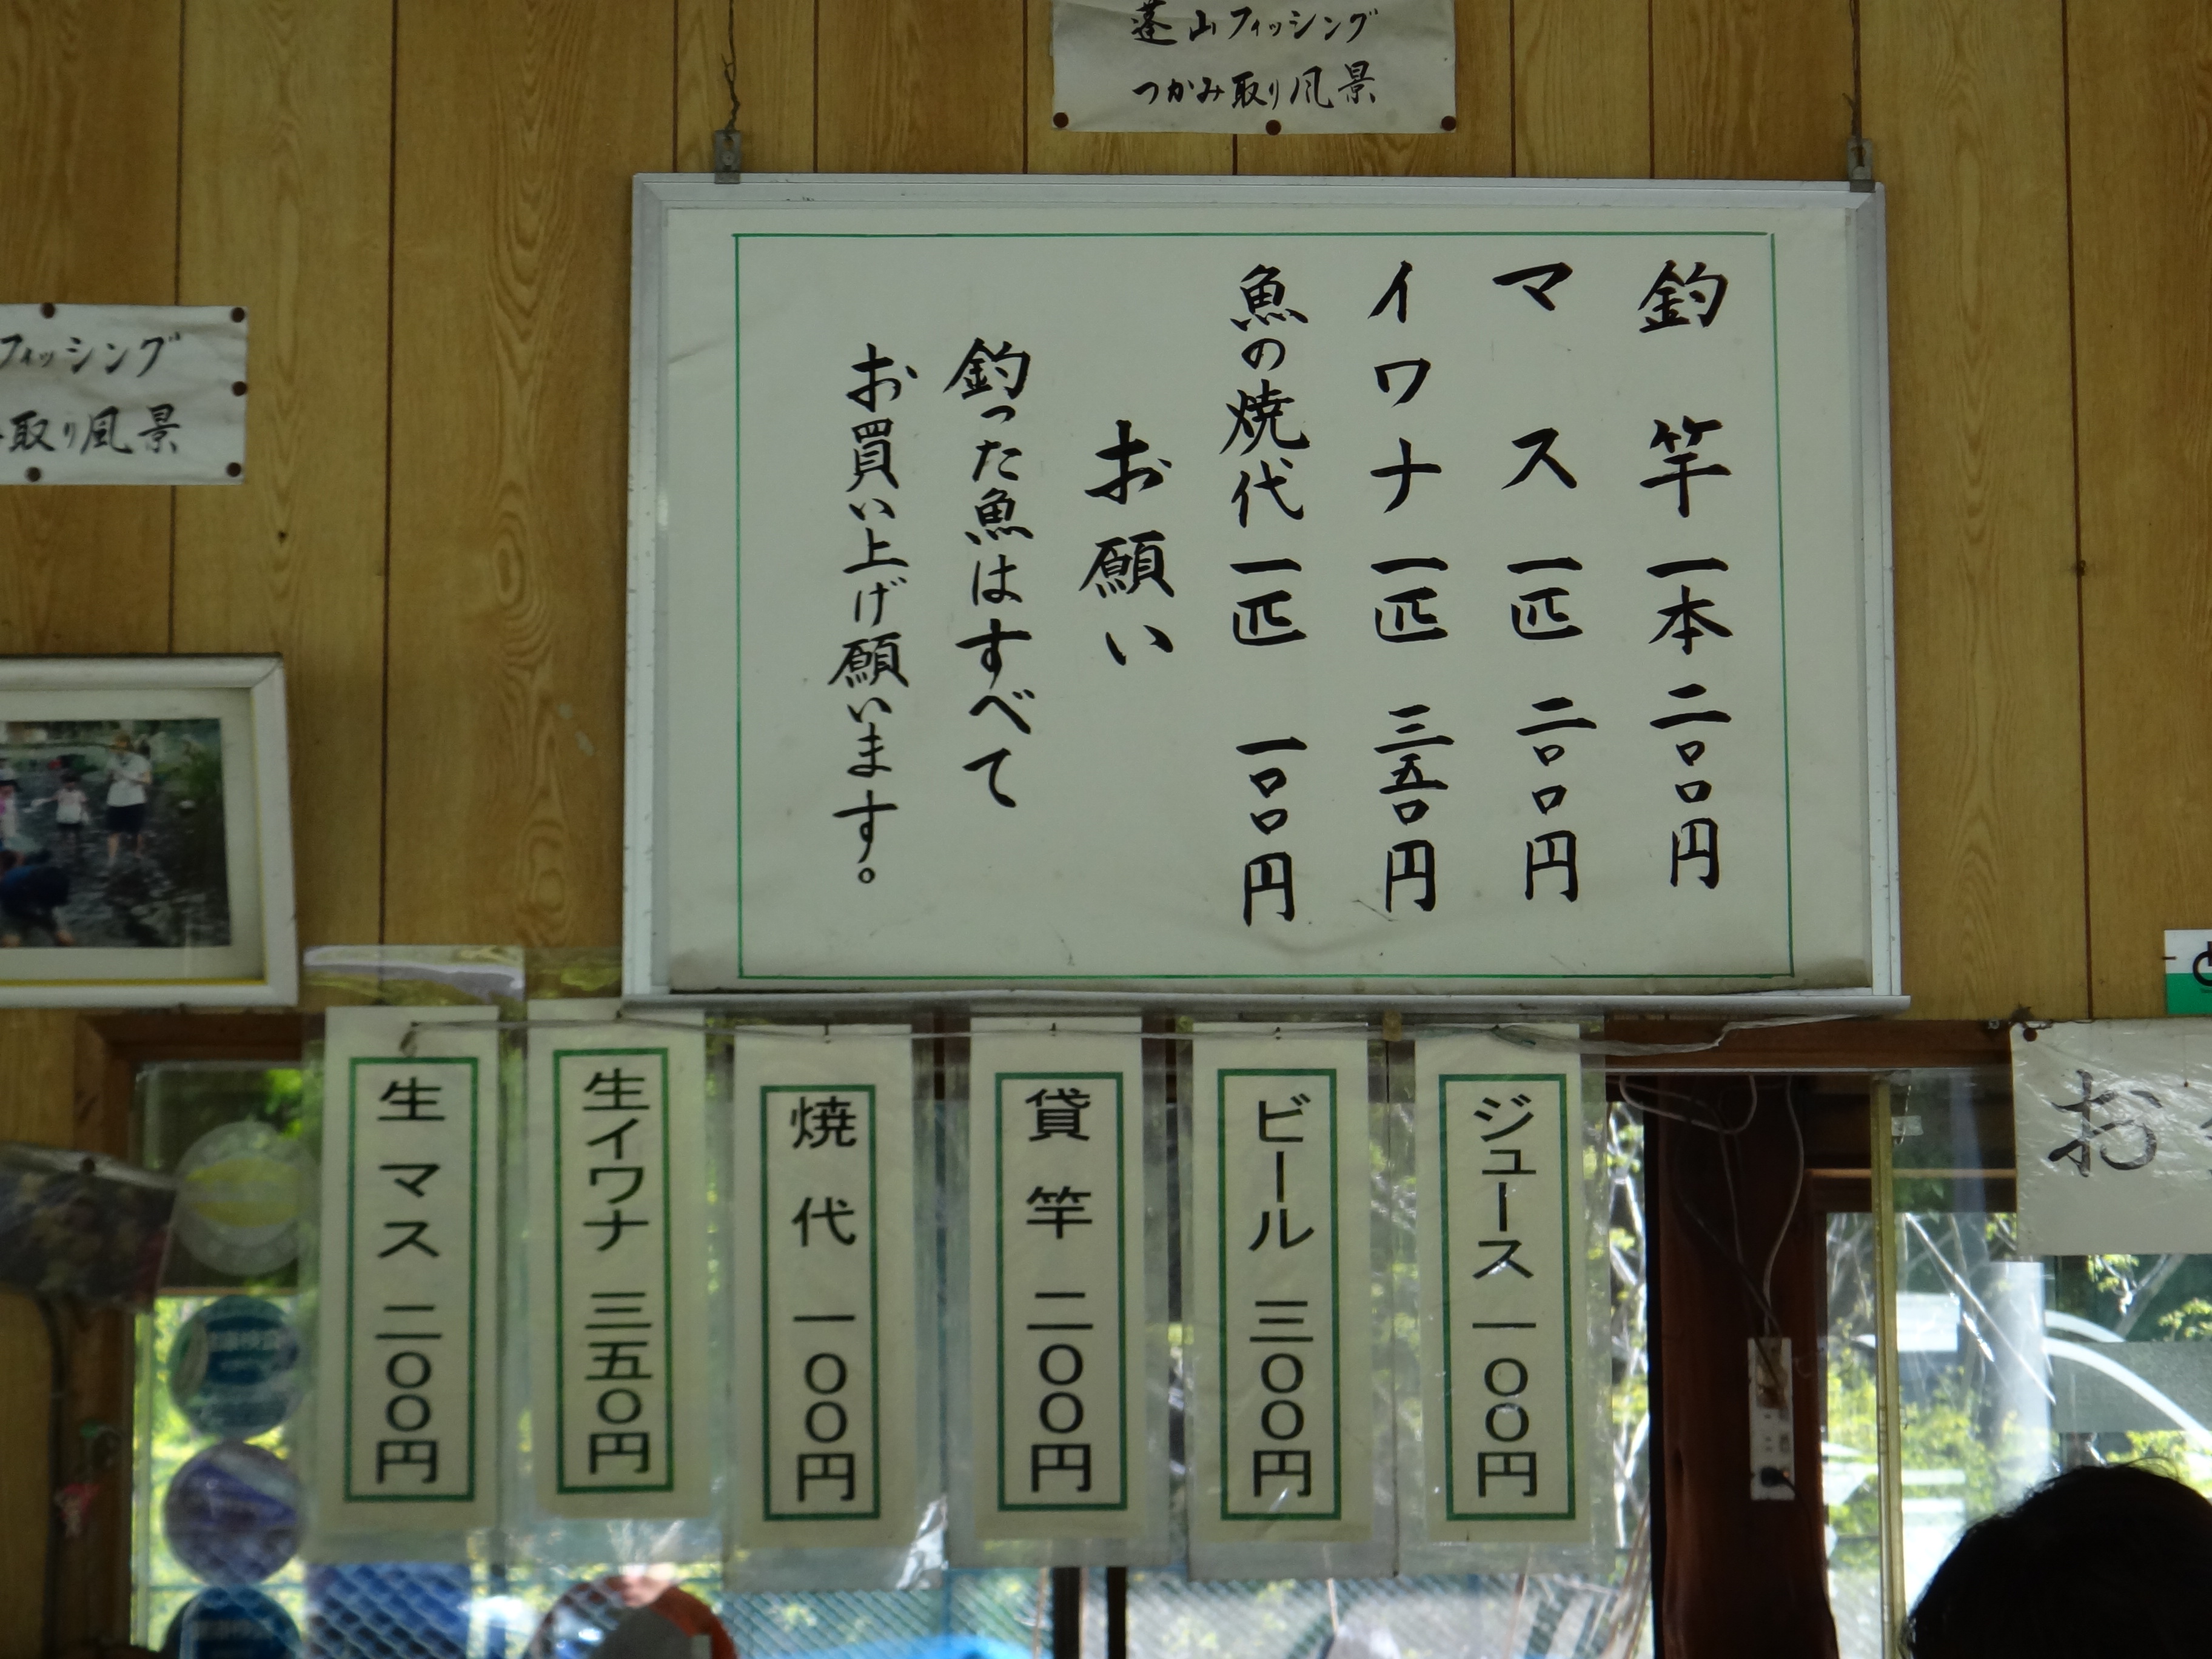 蓬山フィッシング
つかみ取り風景
フィッシング
取り風景
釣竿一本二〇〇円
マス一匹二〇〇円
イワナ一匹三五〇円
魚の焼代一匹一〇〇円
お願い
釣った魚はすべて
お買い上げ願います。
ジュース一〇〇円
ビール三〇〇円
貸竿二〇〇円
焼代一〇〇円
生イワナ三五〇円
生マス二〇〇円
お